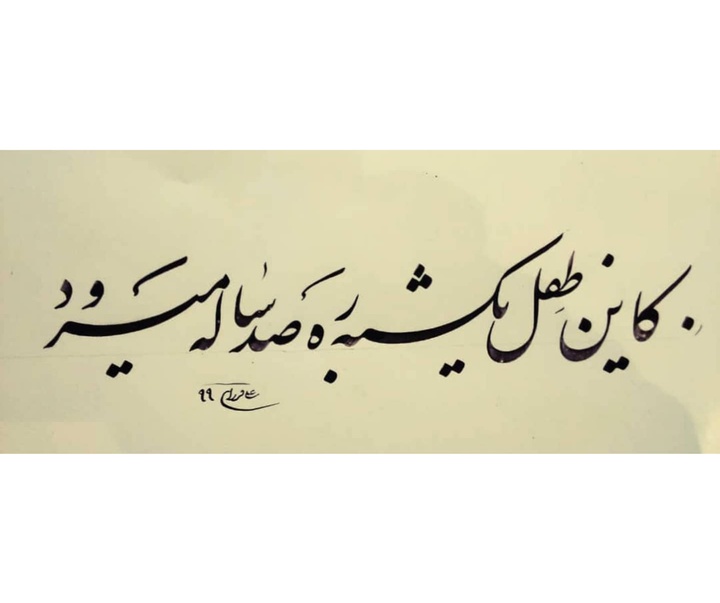 کاین طفل یکشبه ره صد ساله میرود
۹۹